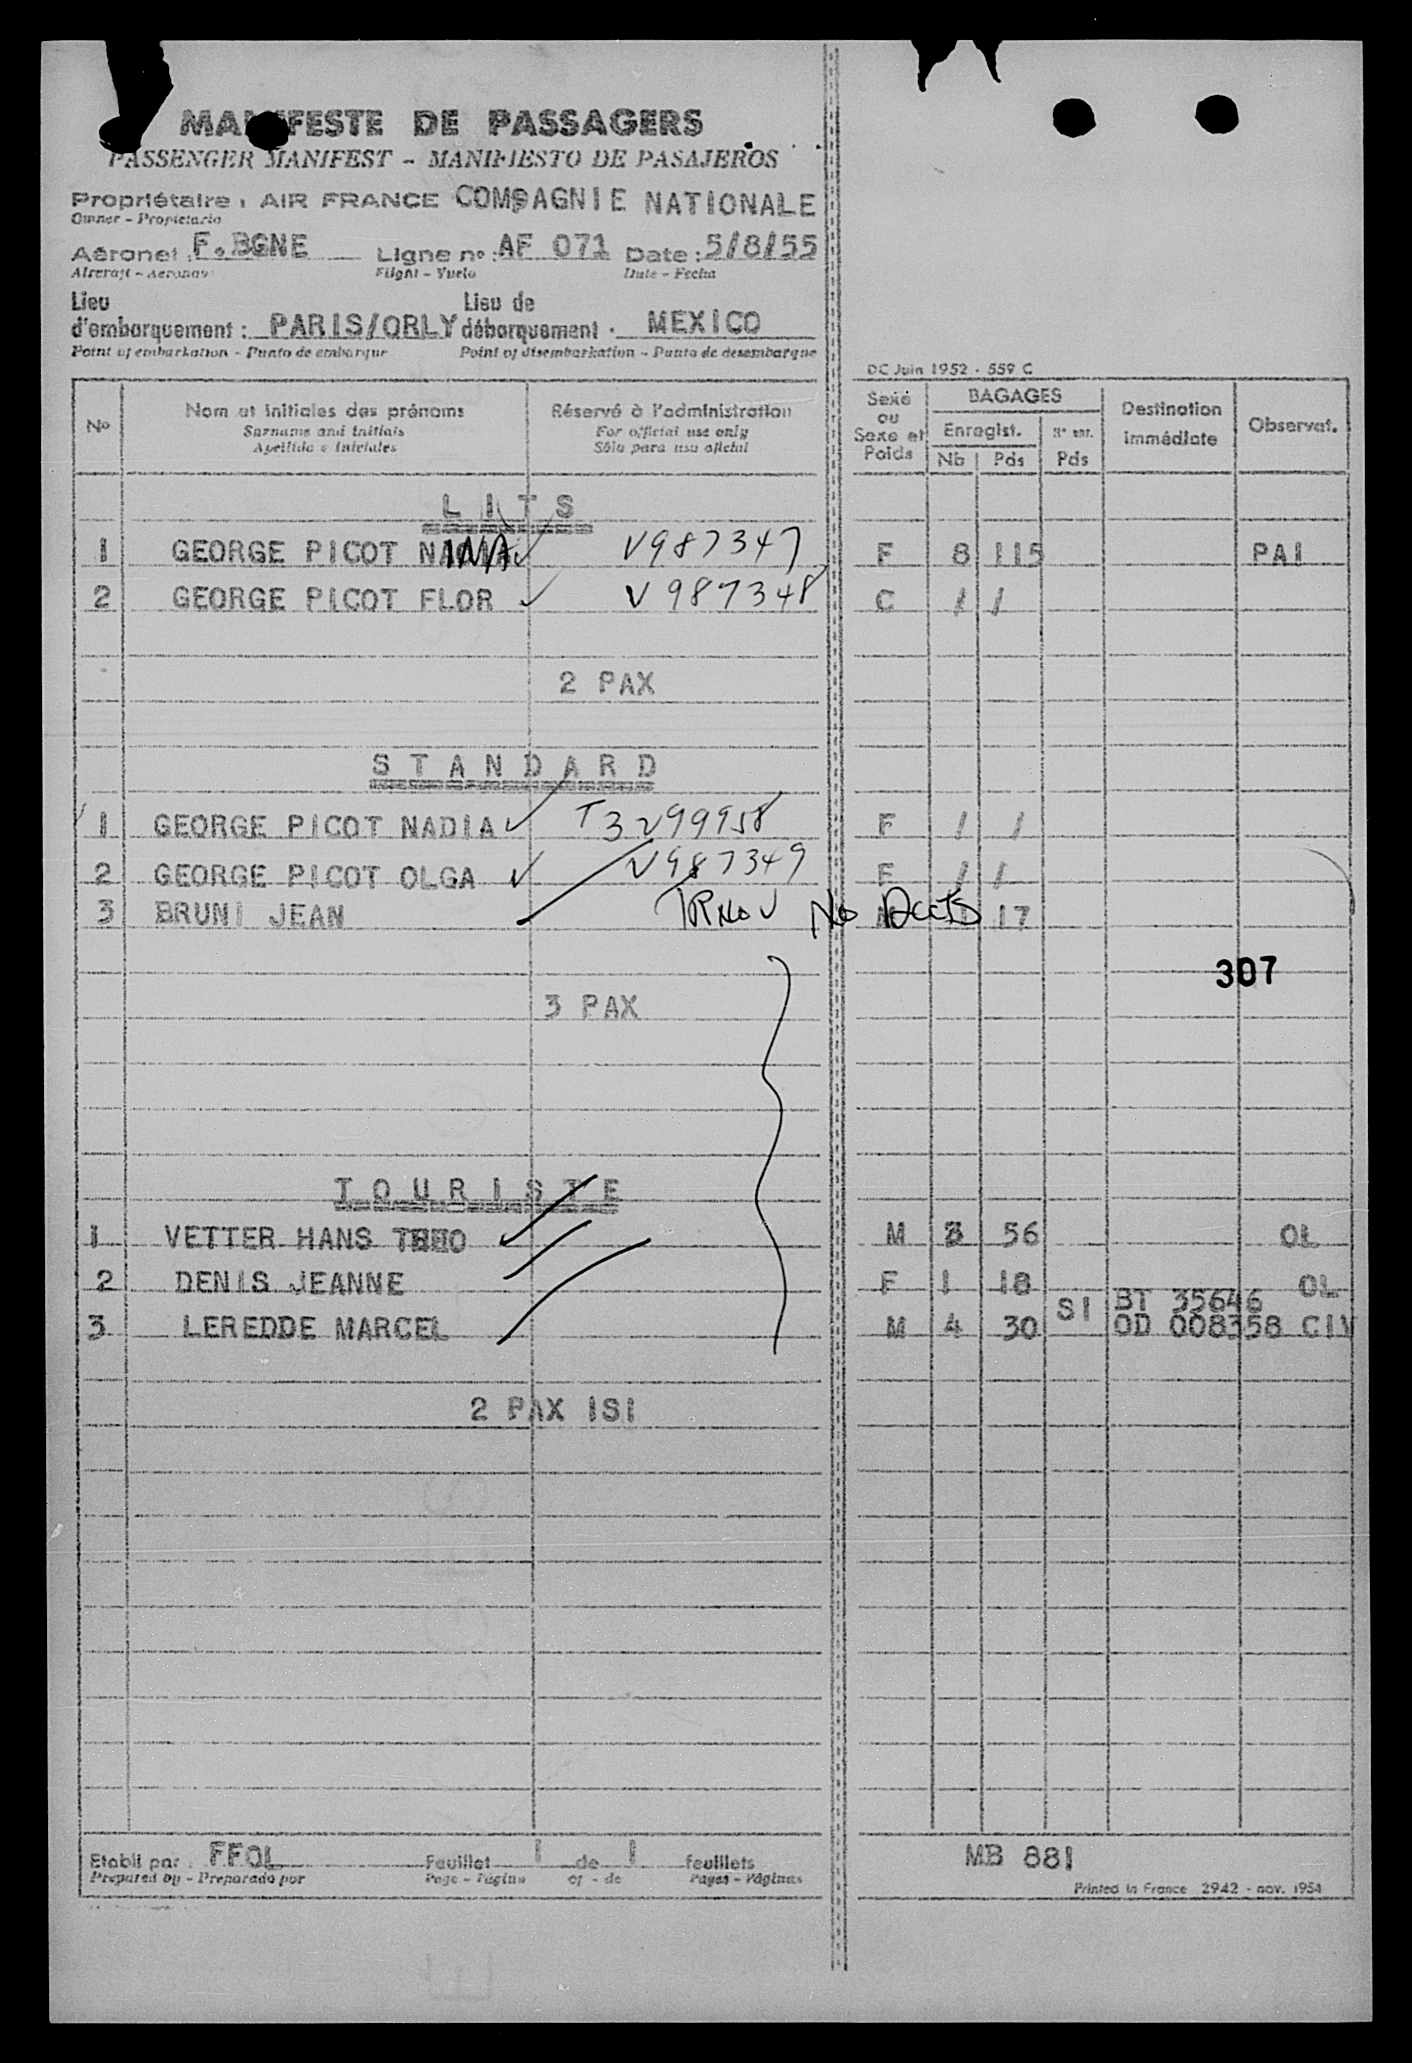 MANIFESTE DE PASSAGERS
PASSENGER MANIFEST - MANIFIESTO DE PASAJEROS
Propriétaire : AIR FRANCE COMPAGNIE NATIONALE
Owner - Propietario
Aéronef : F.BGNE Ligne nº : AF 071 Date : 5/8/55
Aircraft - Aeronave Flight - Vuelo Date - Fecha
Lieu d'embarquement : PARIS/ORLY Lieu de débarquement : MEXICO
Point of embarkation - Punto de embarque Point of disembarkation - Punto de desembarque
DC Juin 1952 - 559 C
Nº Nom et initiales des prénoms Réservé à l'administration Sexe ou Sexe et Poids BAGAGES Destination immédiate Observat.
Surname and initials For official use only Enregist. Nº enr.
Apellido e iniciales Sólo para uso oficial Nb Pds Pds
L I T S
1 GEORGE PICOT INA V987347 F 8 115 PAI
2 GEORGE PICOT FLOR V987348 C / /
2 PAX
S T A N D A R D
1 GEORGE PICOT NADIA T3299958 F / /
2 GEORGE PICOT OLGA V987349 F / /
3 BRUNI JEAN No Docts M 1 17
307
3 PAX
T O U R I S T E
1 VETTER HANS THEO M 3 56 OL
2 DENIS JEANNE F 1 18 OL
SI BT 35646
3 LEREDDE MARCEL M 4 30 OD 008358 CIV
2 PAX ISI
Etabli par : FFOL Feuillet 1 de 1 feuillets MB 881
Prepared by - Preparado por Page - Página of - de Pages - Páginas
Printed in France 2942 - nov. 1954